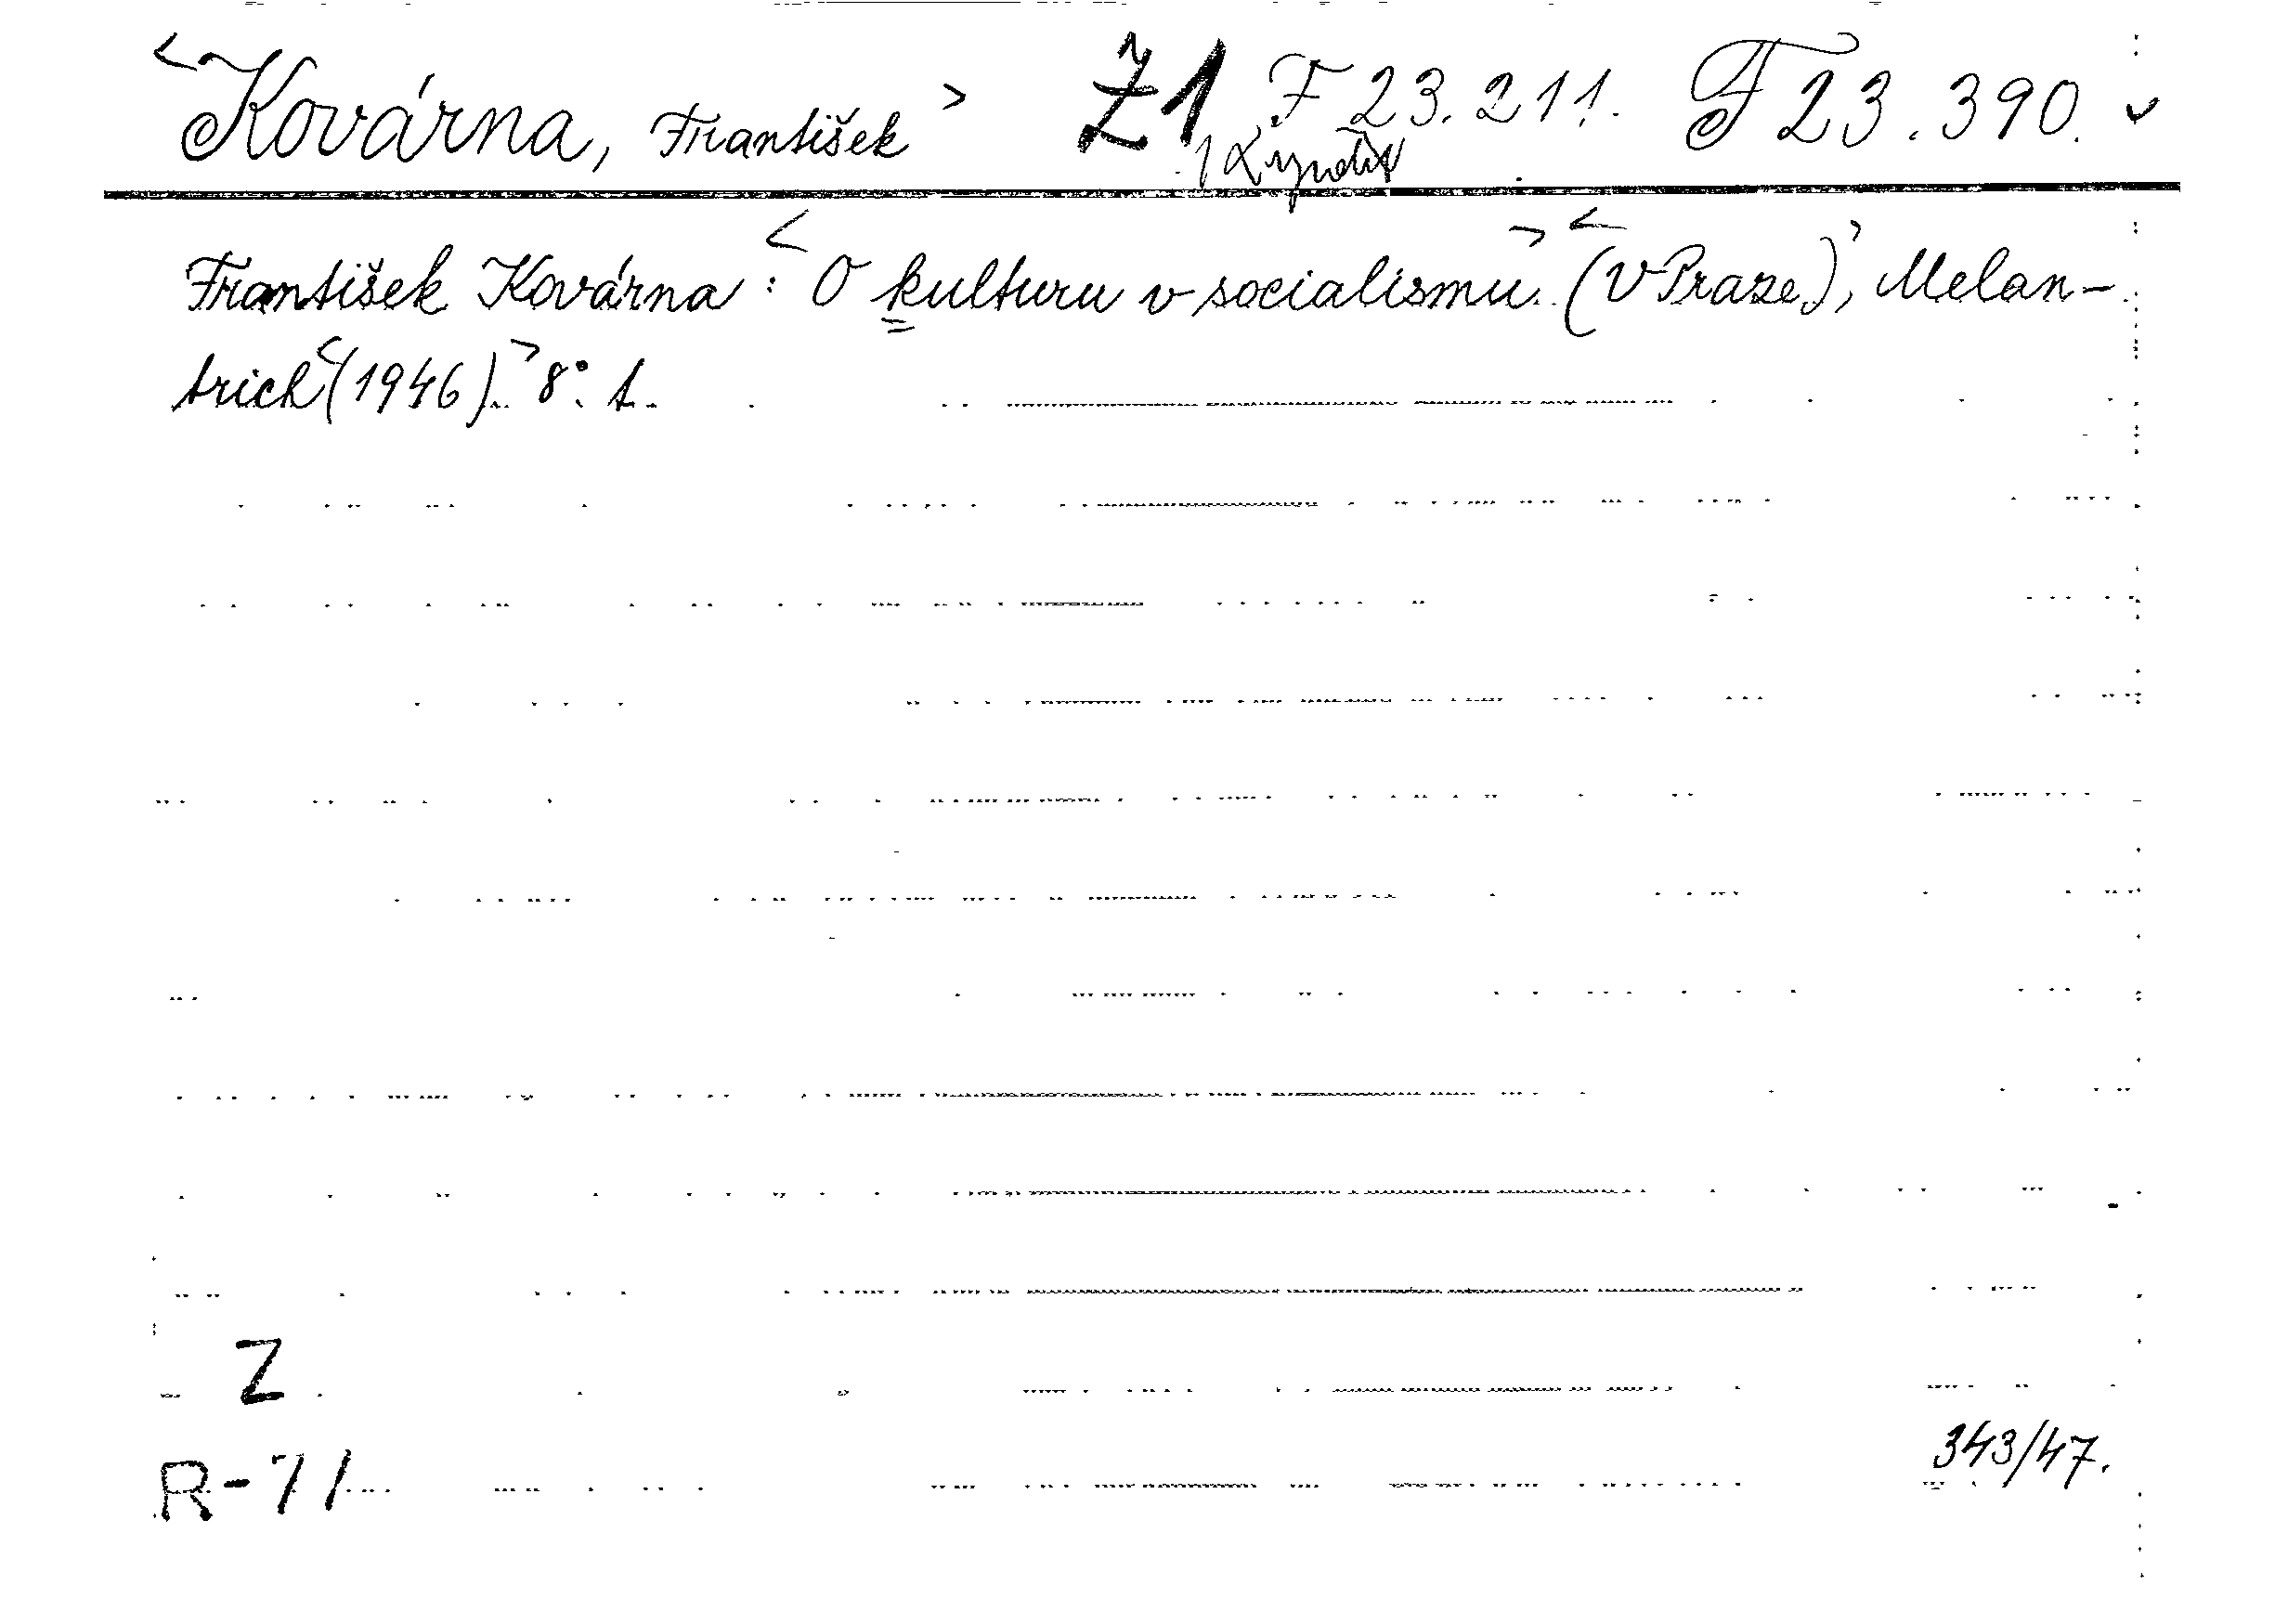 <Kovárna, František> Ž1 F 23.211. F 23.390.
František Kovárna: <O kulturu v socialismu.> <(V Praze,)> Melan-
trich <(1946).> 8°. t.
Z
R-71
343/47.